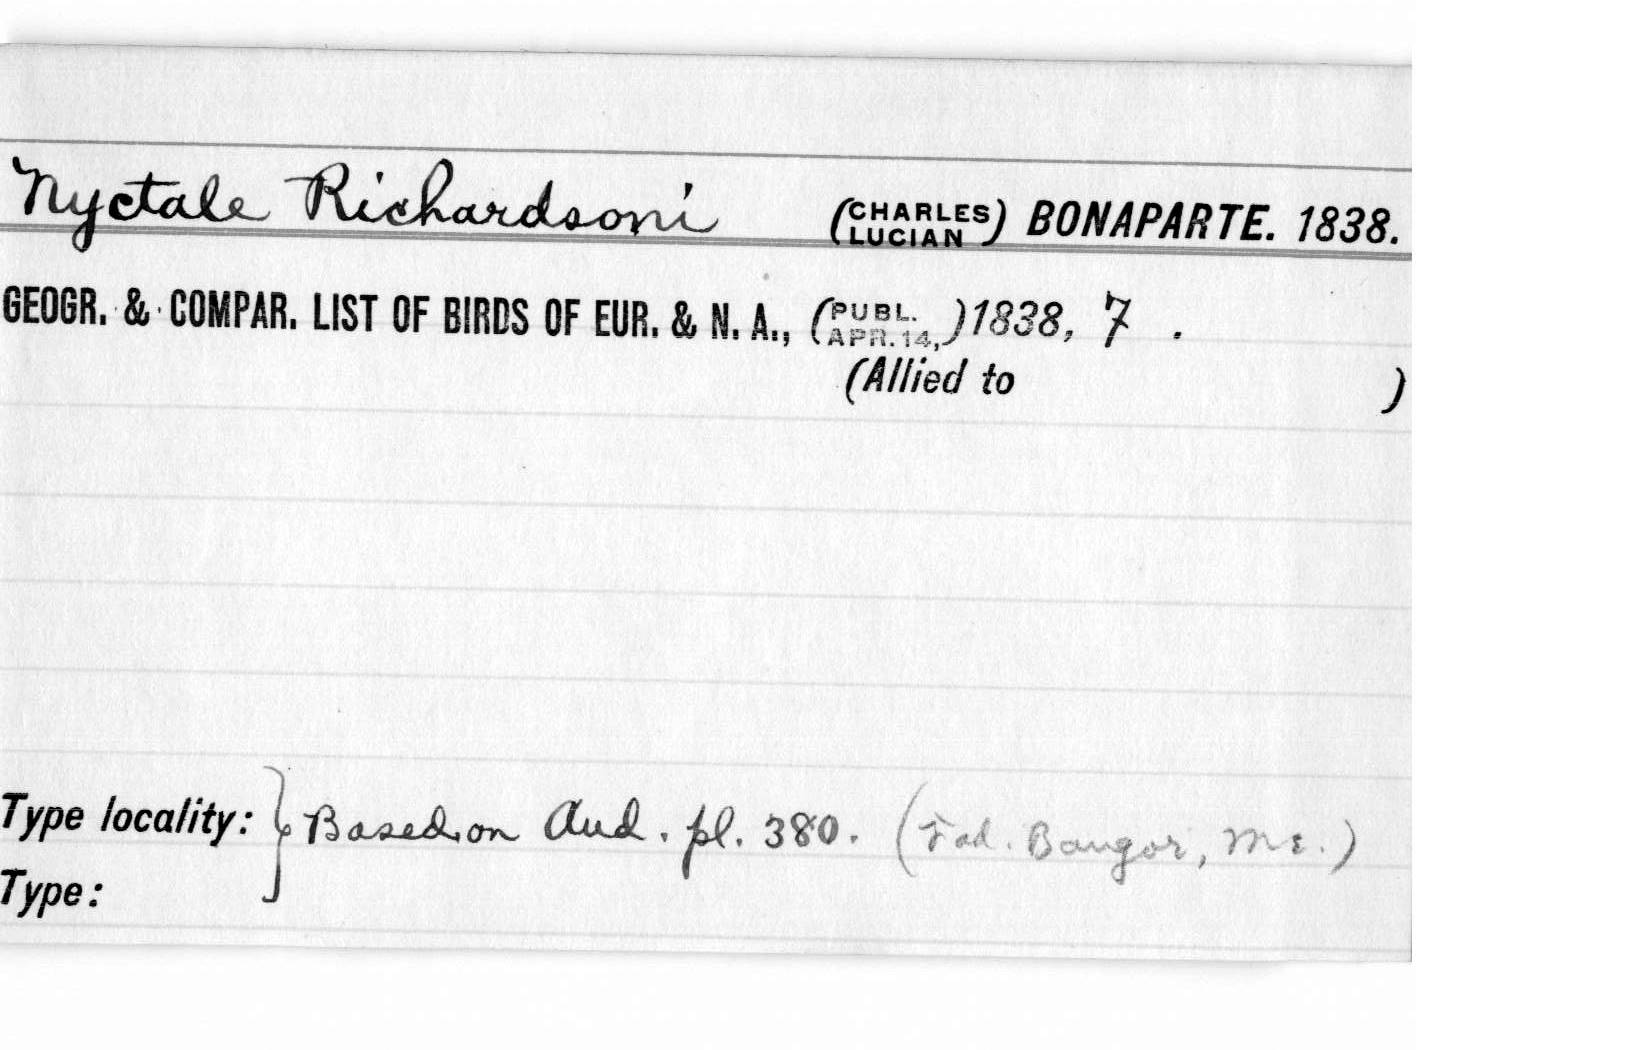 Nyctale Richardsoni (CHARLES LUCIAN) BONAPARTE. 1838.
GEOGR. & COMPAR. LIST OF BIRDS OF EUR. & N. A., (PUBL. APR. 14,) 1838, 7 .
(Allied to )
Type locality: } Based on Aud. pl. 380. (Fad. Bangor, Me.)
Type: